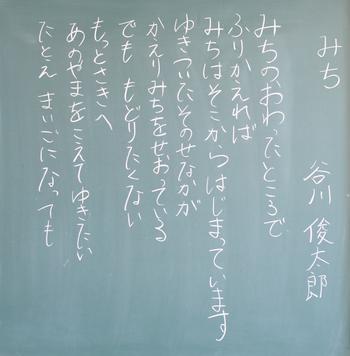 みち
谷川 俊太郎
みちのおわったところで
ふりかえれば
みちはそこからはじまっています
ゆきついたそのせなかが
かえりみちをせおっている
でも もどりたくない
もっとさきへ
あのやまをこえてゆきたい
たとえ まいごになっても